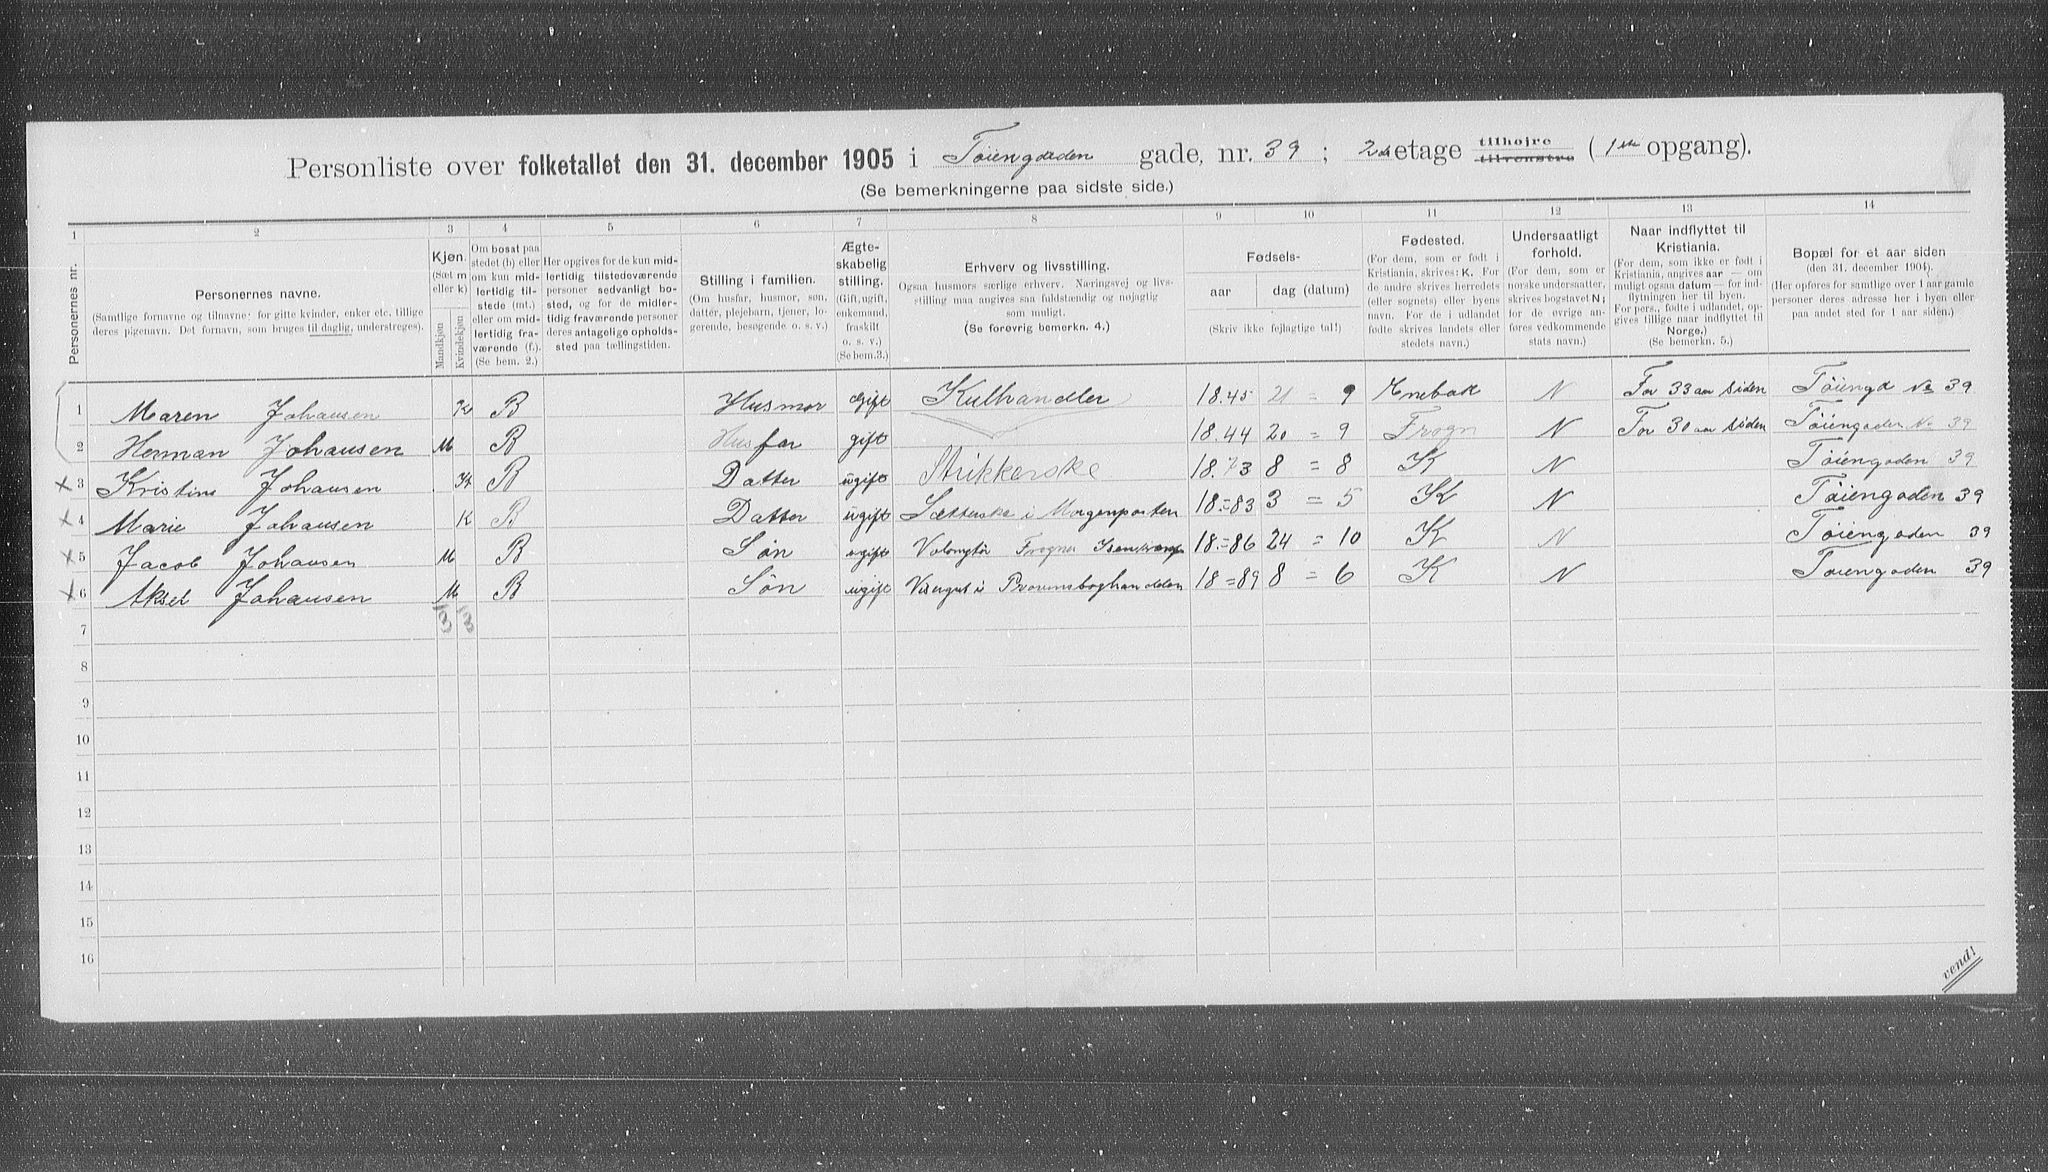 Personliste over folketallet den 31. december 1905 i Tøiengaden gade, nr. 39 ; 2den etage tilhøjre tilvenstre (1ste opgang).
(Se bemerkningerne paa sidste side.)
1 2 3 4 5 6 7 8 9 10 11 12 13 14
Personernes nr.
Personernes navne.
(Samtlige fornavne og tilnavne; for gifte kvinder, enker etc. tillige deres pigenavn. Det fornavn, som bruges til daglig, understreges).
Kjøn.
(Sæt m eller k)
Mandkjøn
Kvindekjøn
Om bosat paa stedet (b) eller om kun midlertidig tilstede (mt.) eller om midlertidig fraværende (f.). (Se bem. 2.)
Her opgives for de kun midlertidig tilstedeværende personer sedvanligt bosted, og for de midlertidig fraværende personer deres antagelige opholdssted paa tællingstiden.
Stilling i familien.
(Om husfar, husmor, søn, datter, plejebarn, tjener, logerende, besøgende o. s. v.)
Ægteskabelig stilling.
(Gift, ugift, enkemand, fraskilt o. s. v.) (Se bem.3.)
Erhverv og livsstilling.
Ogsaa husmors særlige erhverv. Næringsvej og livsstilling maa angives saa fuldstændig og nøjagtig som muligt.
(Se forøvrig bemerkn. 4.)
Fødsels-
aar
dag (datum)
(Skriv ikke fejlagtige tal!)
Fødested.
(For dem, som er født i Kristiania, skrives: K. For de andre skrives herredets (eller sognets) eller byens navn. For de i udlandet fødte skrives landets eller stedets navn.)
Undersaatligt forhold.
(For dem, som er norske undersaatter, skrives bogstavet N; for de øvrige anføres vedkommende stats navn.)
Naar indflyttet til Kristiania.
(For dem, som ikke er født i Kristiania, angives aar — om muligt ogsaa datum — for indflytningen her til byen. For pers., fødte i udlandet, opgives tillige naar indflyttet til Norge.)
(Se bemerkn. 5.)
Bopæl for et aar siden
(den 31. december 1904).
(Her opføres for samtlige over 1 aar gamle personer deres adresse her i byen eller paa andet sted for 1 aar siden.)
1 Maren Johansen K B Husmor Gift Kulhandler 18.45 21 = 9 Enebak N For 33 aar siden Tøiengd No 39
2 Herman Johansen M B Husfar gift 18.44 20 = 9 Frogn N For 30 aar siden Tøiengaden No 39
x 3 Kristine Johansen K B Datter ugift Strikkerske 18.73 8 = 8 K N Tøiengaden 39
x 4 Marie Johansen K B Datter ugift Sætterske i Morgenposten 18=83 3 = 5 K N Tøiengaden 39
x 5 Jacob Johansen M B Søn ugift Volongtør 18=86 24 = 10 K N Tøiengaden 39
x 6 Aksel Johansen M B Søn ugift Visergut i 18=89 8 = 6 K N Tøiengaden 39
7
8
9
10
11
12
13
14
15
16
vend!